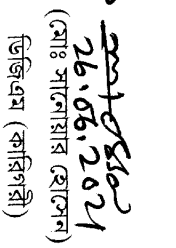 ২৬.০৬.২০২১
(মোঃ সানোয়ার হোসেন)
ডিজিএম (কারিগরী)